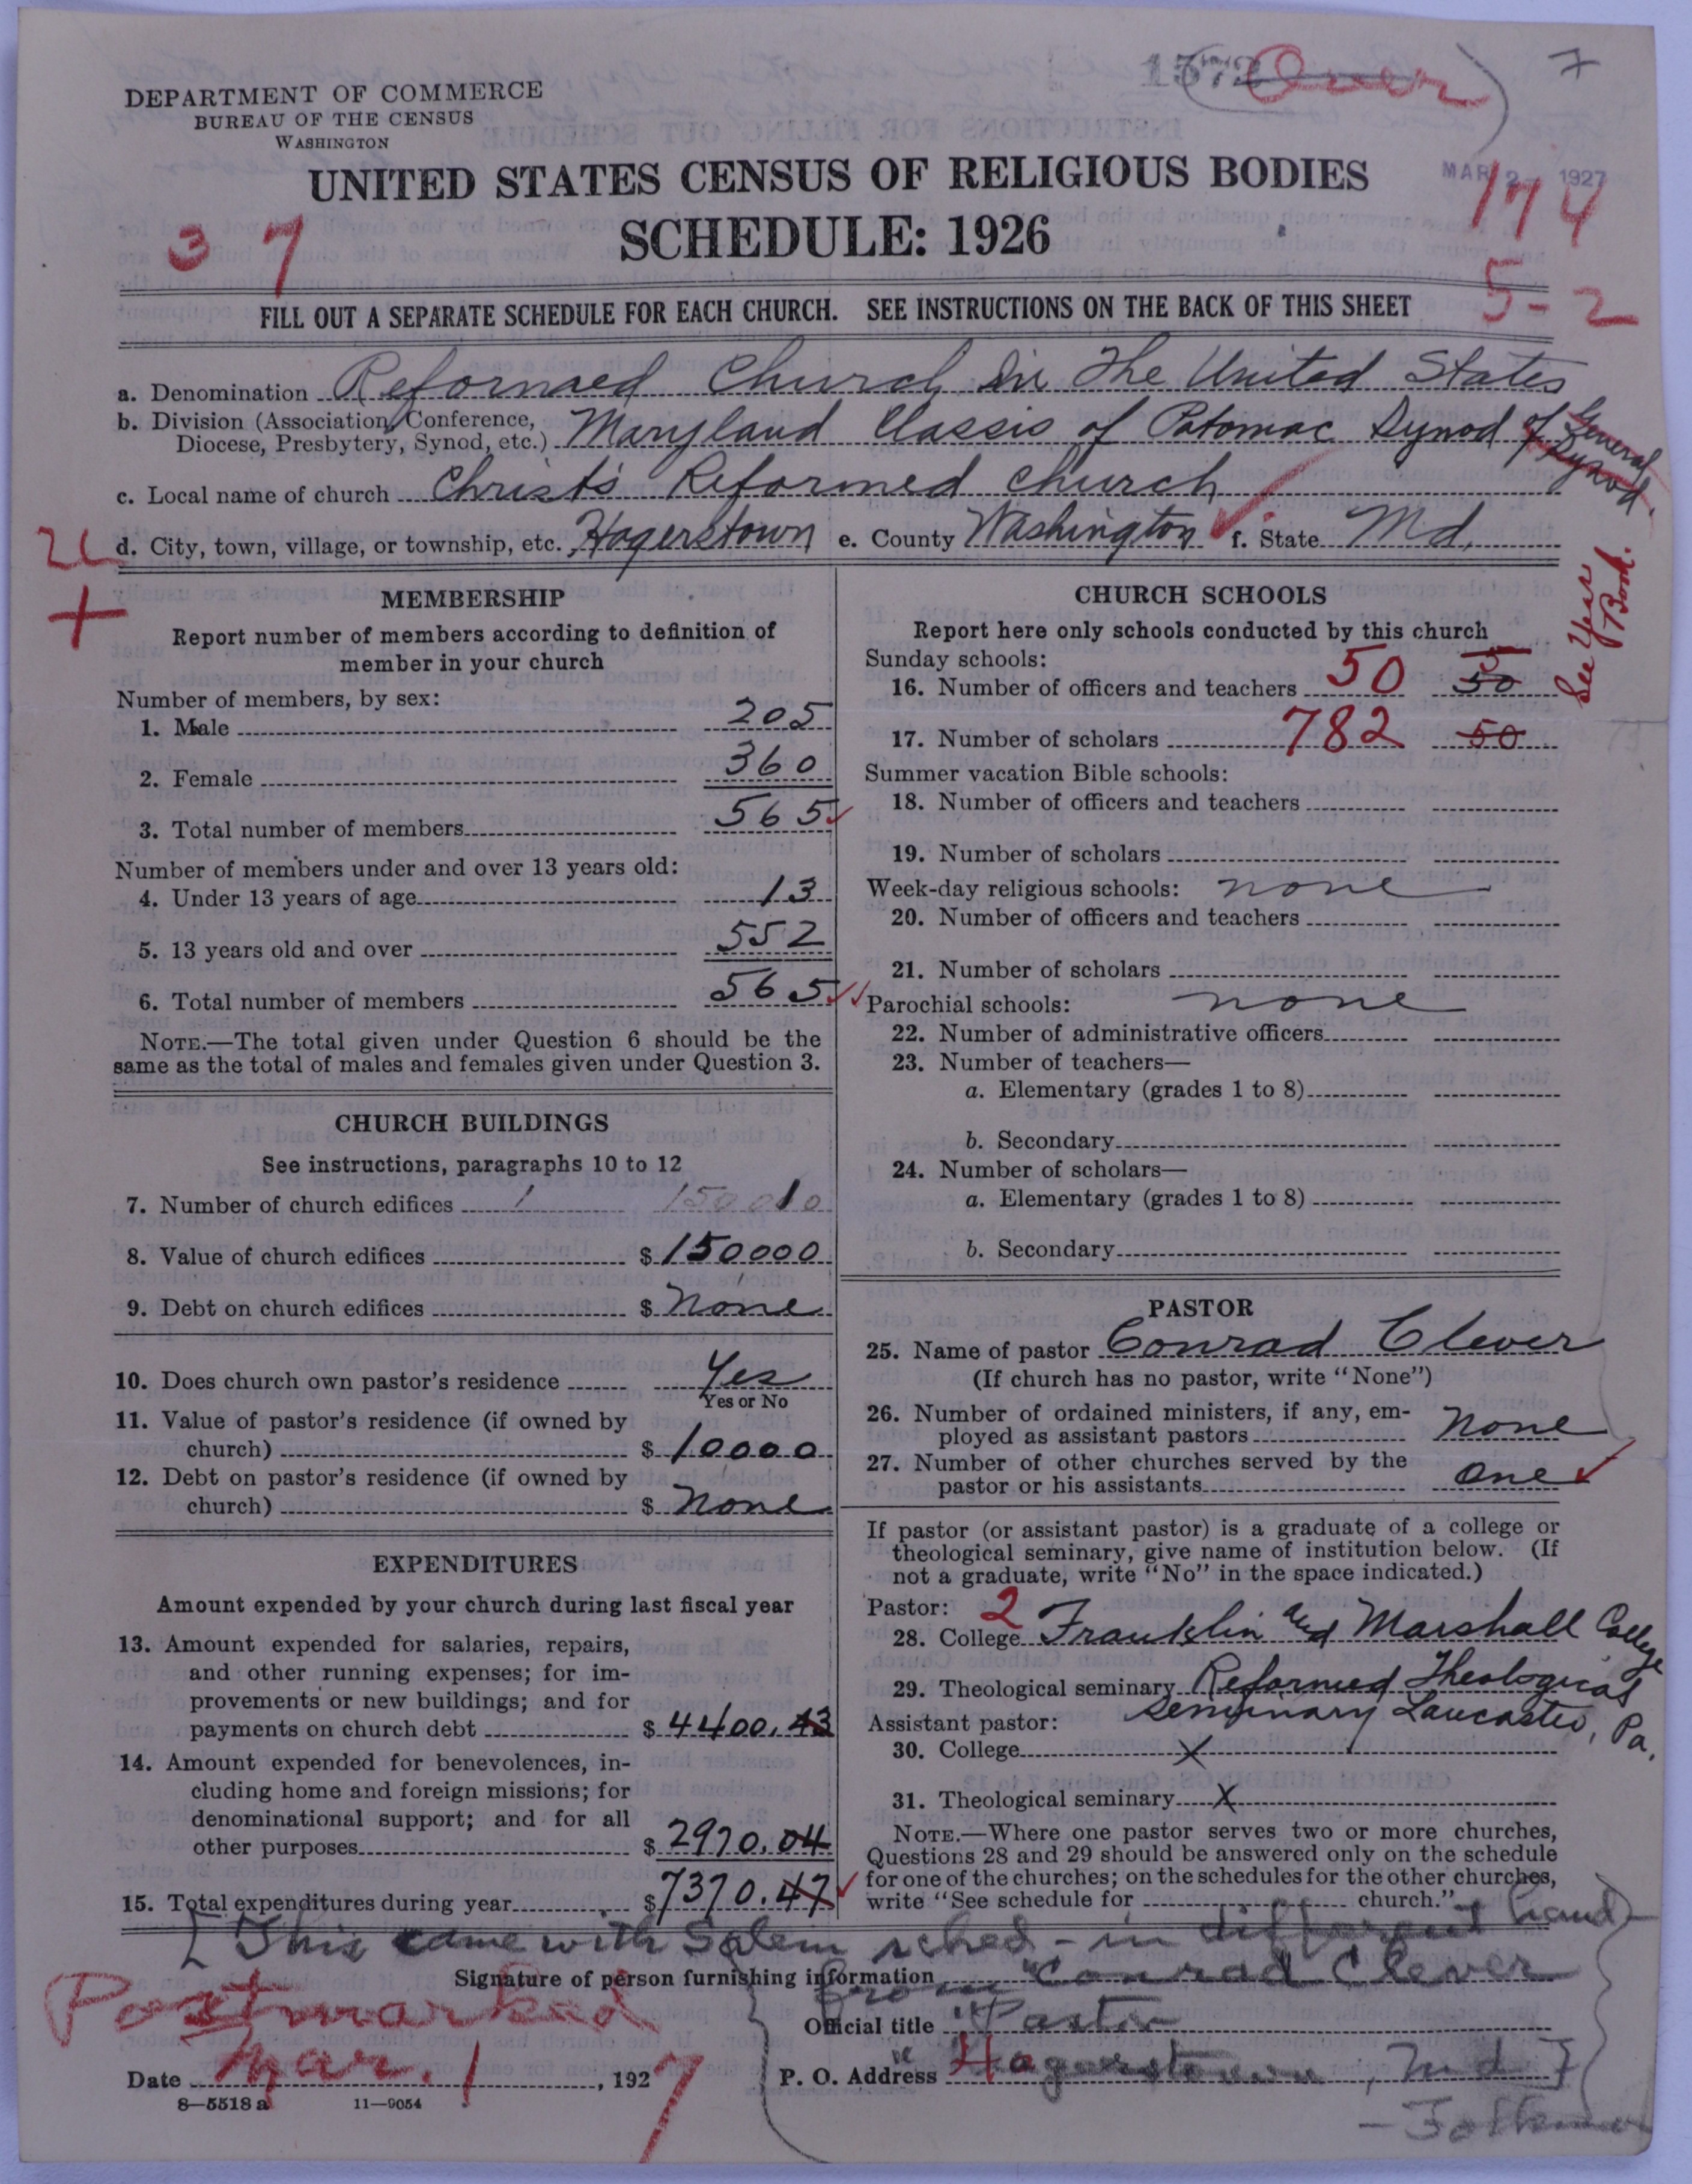 1372 Over 7
DEPARTMENT OF COMMERCE
BUREAU OF THE CENSUS
WASHINGTON
MAR 2 1927
UNITED STATES CENSUS OF RELIGIOUS BODIES
SCHEDULE: 1926
37
174
5-2
FILL OUT A SEPARATE SCHEDULE FOR EACH CHURCH. SEE INSTRUCTIONS ON THE BACK OF THIS SHEET
a. Denomination Reformed Church in The United States
b. Division (Association, Conference,
Diocese, Presbytery, Synod, etc.) Maryland Classis of Potomac Synod of General Synod.
c. Local name of church Christ's Reformed Church
d. City, town, village, or township, etc. Hagerstown e. County Washington f. State Md.
See Year Book.
MEMBERSHIP
Report number of members according to definition of
member in your church
Number of members, by sex:
1. Male 205
2. Female 360
3. Total number of members 565
Number of members under and over 13 years old:
4. Under 13 years of age 13
5. 13 years old and over 552
6. Total number of members 565
NOTE.—The total given under Question 6 should be the
same as the total of males and females given under Question 3.
CHURCH BUILDINGS
See instructions, paragraphs 10 to 12
7. Number of church edifices 1 150010
8. Value of church edifices $ 150000
9. Debt on church edifices $ None
10. Does church own pastor's residence Yes
Yes or No
11. Value of pastor's residence (if owned by
church) $ 10000
12. Debt on pastor's residence (if owned by
church) $ None
EXPENDITURES
Amount expended by your church during last fiscal year
13. Amount expended for salaries, repairs,
and other running expenses; for im-
provements or new buildings; and for
payments on church debt $ 4400.43
14. Amount expended for benevolences, in-
cluding home and foreign missions; for
denominational support; and for all
other purposes $ 2970.04
15. Total expenditures during year $ 7370.47
CHURCH SCHOOLS
Report here only schools conducted by this church
Sunday schools:
16. Number of officers and teachers 50 50
17. Number of scholars 782 50
Summer vacation Bible schools:
18. Number of officers and teachers
19. Number of scholars
Week-day religious schools: none
20. Number of officers and teachers
21. Number of scholars
Parochial schools: none
22. Number of administrative officers
23. Number of teachers—
a. Elementary (grades 1 to 8)
b. Secondary
24. Number of scholars—
a. Elementary (grades 1 to 8)
b. Secondary
PASTOR
25. Name of pastor Conrad Clever
(If church has no pastor, write "None")
26. Number of ordained ministers, if any, em-
ployed as assistant pastors none
27. Number of other churches served by the
pastor or his assistants one
If pastor (or assistant pastor) is a graduate of a college or
theological seminary, give name of institution below. (If
not a graduate, write "No" in the space indicated.)
Pastor: 2
28. College Franklin and Marshall College
29. Theological seminary Reformed Theological
Seminary Lancaster, Pa.
Assistant pastor:
30. College X
31. Theological seminary X
NOTE.—Where one pastor serves two or more churches,
Questions 28 and 29 should be answered only on the schedule
for one of the churches; on the schedules for the other churches,
write "See schedule for church."
[This came with Salem sched - in different hand
Signature of person furnishing information from "Conrad Clever
Postmarked
Official title "Pastor
Date Mar. 1, 1927
P. O. Address Hagerstown, Md]
8—5518 a 11—9054